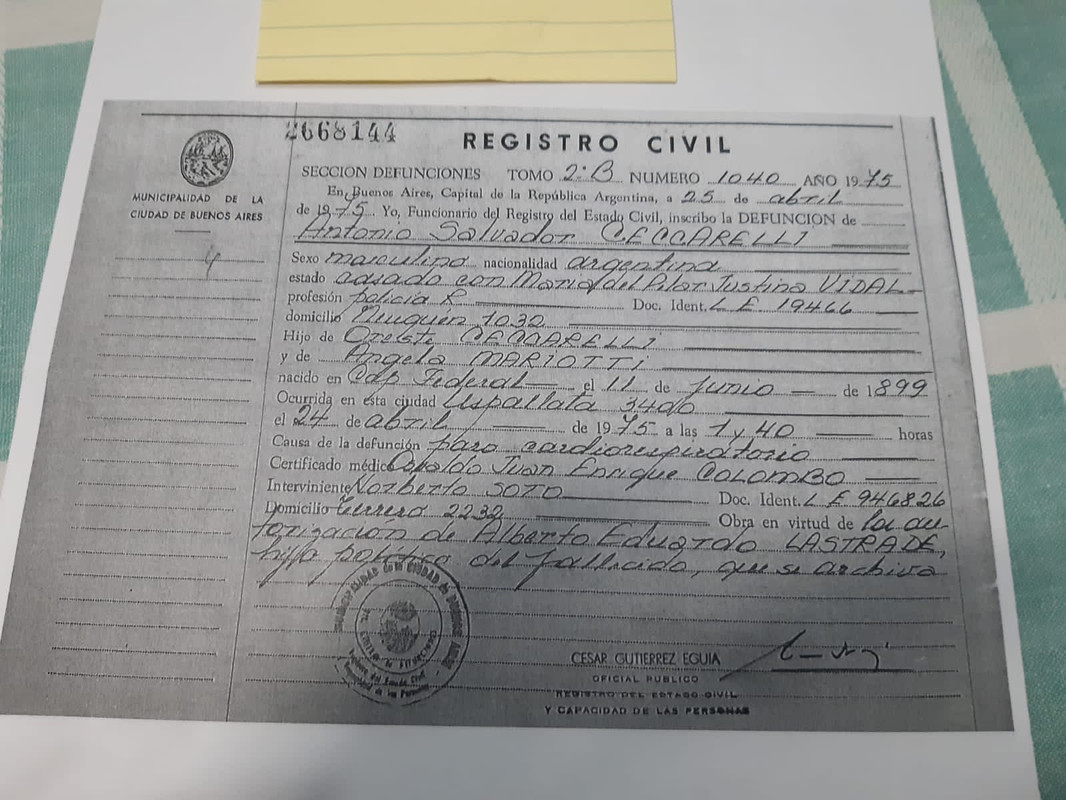 2668144
REGISTRO CIVIL
MUNICIPALIDAD DE LA
CIUDAD DE BUENOS AIRES
4
SECCION DEFUNCIONES TOMO 2ºB NUMERO 1040 AÑO 1975
En Buenos Aires, Capital de la República Argentina, a 25 de abril
de 1975. Yo, Funcionario del Registro del Estado Civil, inscribo la DEFUNCION de
Antonio Salvador CECCARELLI
Sexo masculino nacionalidad argentina
estado casado con Maria del Pilar Justina VIDAL
profesión policia R Doc. Ident. L E 19466
domicilio Neuquén 1032
Hijo de Oreste CECCARELLI
y de Angela MARIOTTI
nacido en Cap Federal el 11 de junio de 1899
Ocurrida en esta ciudad Uspallata 3400
el 24 de abril de 1975 a las 1 y 40 horas
Causa de la defunción paro cardiorespiratorio
Certificado médico Osvaldo Juan Enrique COLOMBO
Interviniente Norberto SOTO Doc. Ident. L E 946826
Domicilio 2232 Obra en virtud de la au-
torización de Alberto Eduardo LASTRADE,
hijo político del fallecido, que se archiva
CESAR GUTIERREZ EGUIA
OFICIAL PUBLICO
REGISTRO DEL ESTADO CIVIL
Y CAPACIDAD DE LAS PERSONAS